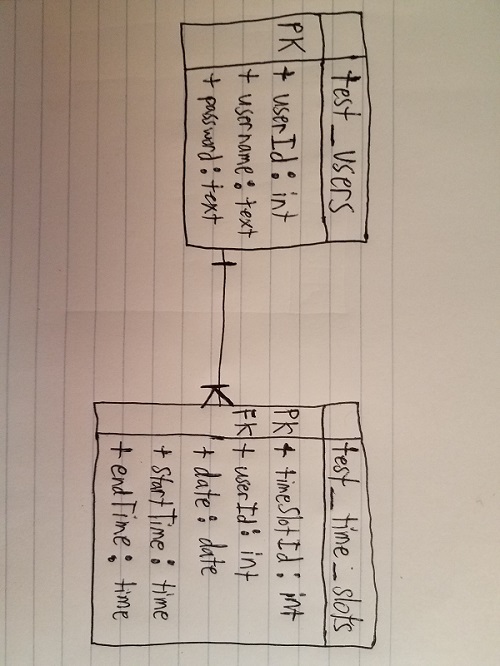 test_users
PK + userId: int
+ username: text
+ password: text
test_time_slots
PK + timeSlotId: int
FK + userId: int
+ date: date
+ startTime: time
+ endTime: time